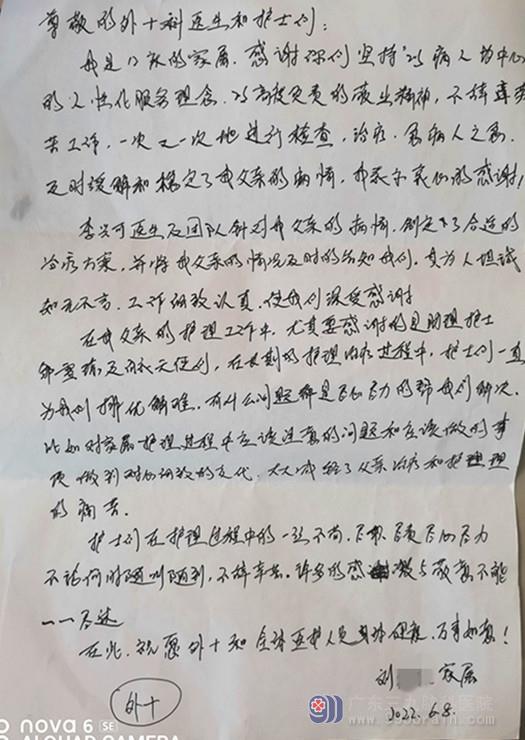 尊敬的外十科医生和护士们:
我是12床的家属,感谢你们坚持"以病人为中心"
的人性化服务理念,以高度负责的敬业精神,不辞辛劳
苦工作,一次又一次地进行检查,治疗,急病人之急,
及时缓解和稳定了我父亲的病情,我表示衷心的感谢!
李兴可医生及团队针对我父亲的病情,制定了合适的
治疗方案,并将我父亲的情况及时的告知我们,其为人坦诚
知无不言,工作细致认真,使我们深受感谢
在我父亲的护理工作中,尤其要感谢的是助理护士
和白衣天使们,在长期的护理治疗过程中,护士们一直
为我们排忧解难,有什么问题都是尽心尽力的帮我们解决,
比如对家属护理过程中应该注意的问题和应该做的事
做到对细致的交代,大大减轻了父亲治疗和护理
的痛苦。
护士们在护理过程中的一丝不苟,尽职尽责尽心尽力
不论何时随叫随到,不辞辛苦,许多的感激与敬意不能
一一尽述
在此,祝愿外十和全体医护人员身体健康,万事如意!
刘 家属
2022.6.8.
外十
nova 6 SE
AI QUAD CAMERA
广东三九脑科医院
999brain.com